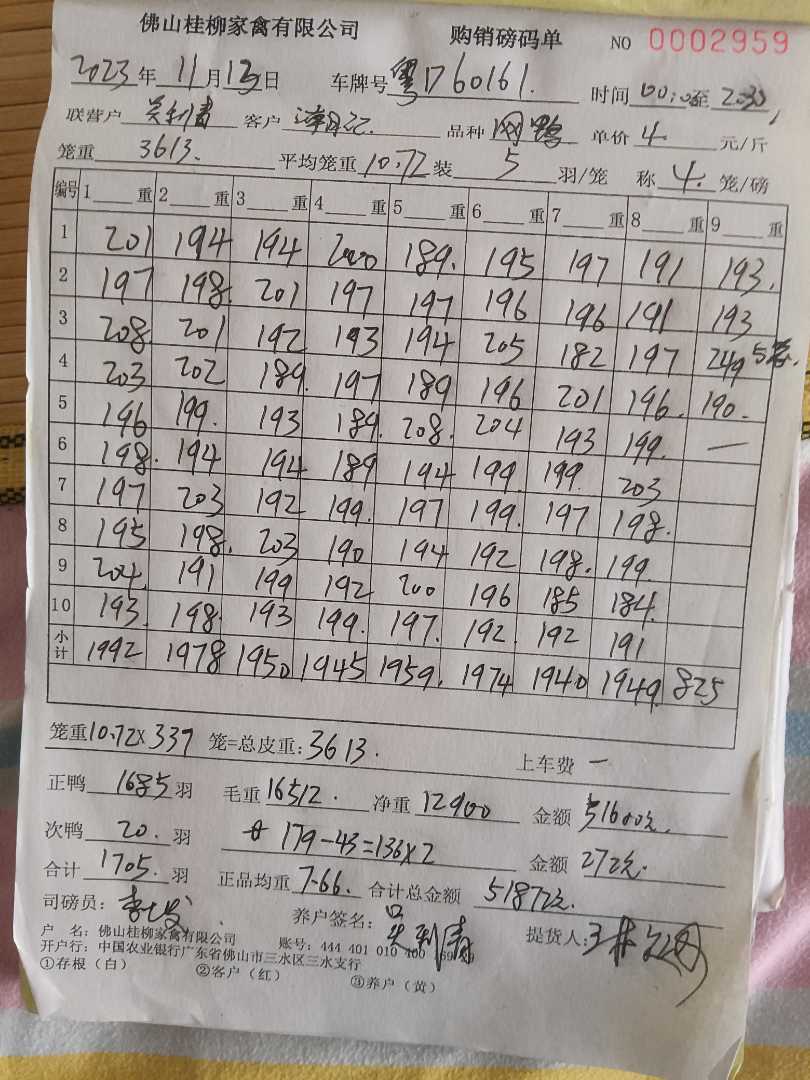 佛山桂柳家禽有限公司 购销磅码单 NO 0002959
2023年11月13日 车牌号 粤1760161. 时间 00:0 至 2:30
联营户 吴利青 客户 品种 网鸭 单价 4. 元/斤
笼重 3613. 平均笼重 10.72 装 5 羽/笼 称 4. 笼/磅
编号 1 重 2 重 3 重 4 重 5 重 6 重 7 重 8 重 9 重
1 201 194 194 200 189. 195 197 191 193.
2 197 198. 201 197 197 196 196 191 193
3 208 201 192 193 194 205 182 197 249 5笼.
4 203 202 189. 197 189 196 201 196. 190.
5 196 199. 193 189. 208. 204 193 199. —
6 198. 194 194 189 194 199. 199. 203
7 197 203 192 199. 197 199. 197 198.
8 195 198. 203 190 194 192 198. 199.
9 204. 191 199 192 200 196 185 184.
10 193. 198. 193 199. 197. 192. 192 191
小计 1992 1978 1950 1945 1959. 1974 1940 1949. 825
笼重 10.72×337 笼=总皮重: 3613. 上车费 一
正鸭 1685 羽 毛重 16512. 净重 12900 金额 51600元.
次鸭 20. 羽 179-43=136×2 金额 272元.
合计 1705. 羽 正品均重 7.66. 合计总金额 51872元.
司磅员: 养户签名: 吴利青 提货人:
户 名: 佛山桂柳家禽有限公司 账号: 444 401 010 400
开户行: 中国农业银行广东省佛山市三水区三水支行
①存根(白) ②客户(红) ③养户(黄)